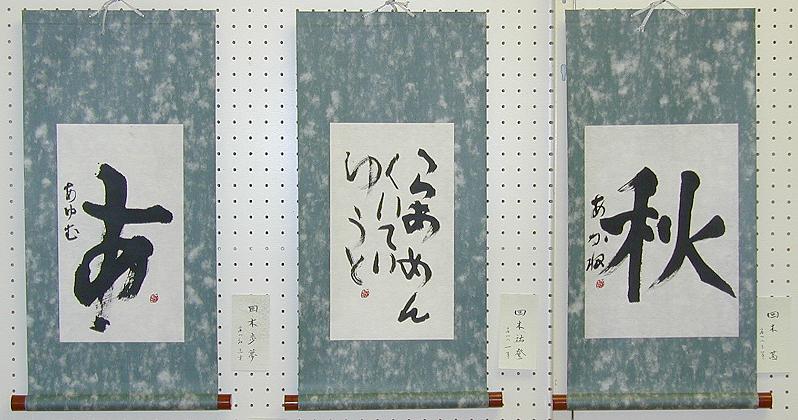 あ
あゆむ
四木歩夢
らあめん
くいてい
ゆうと
四木祐登
秋
あかね
四木